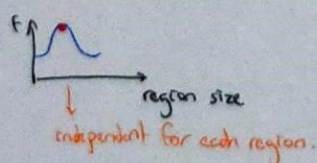 F
region size
independent for each region.